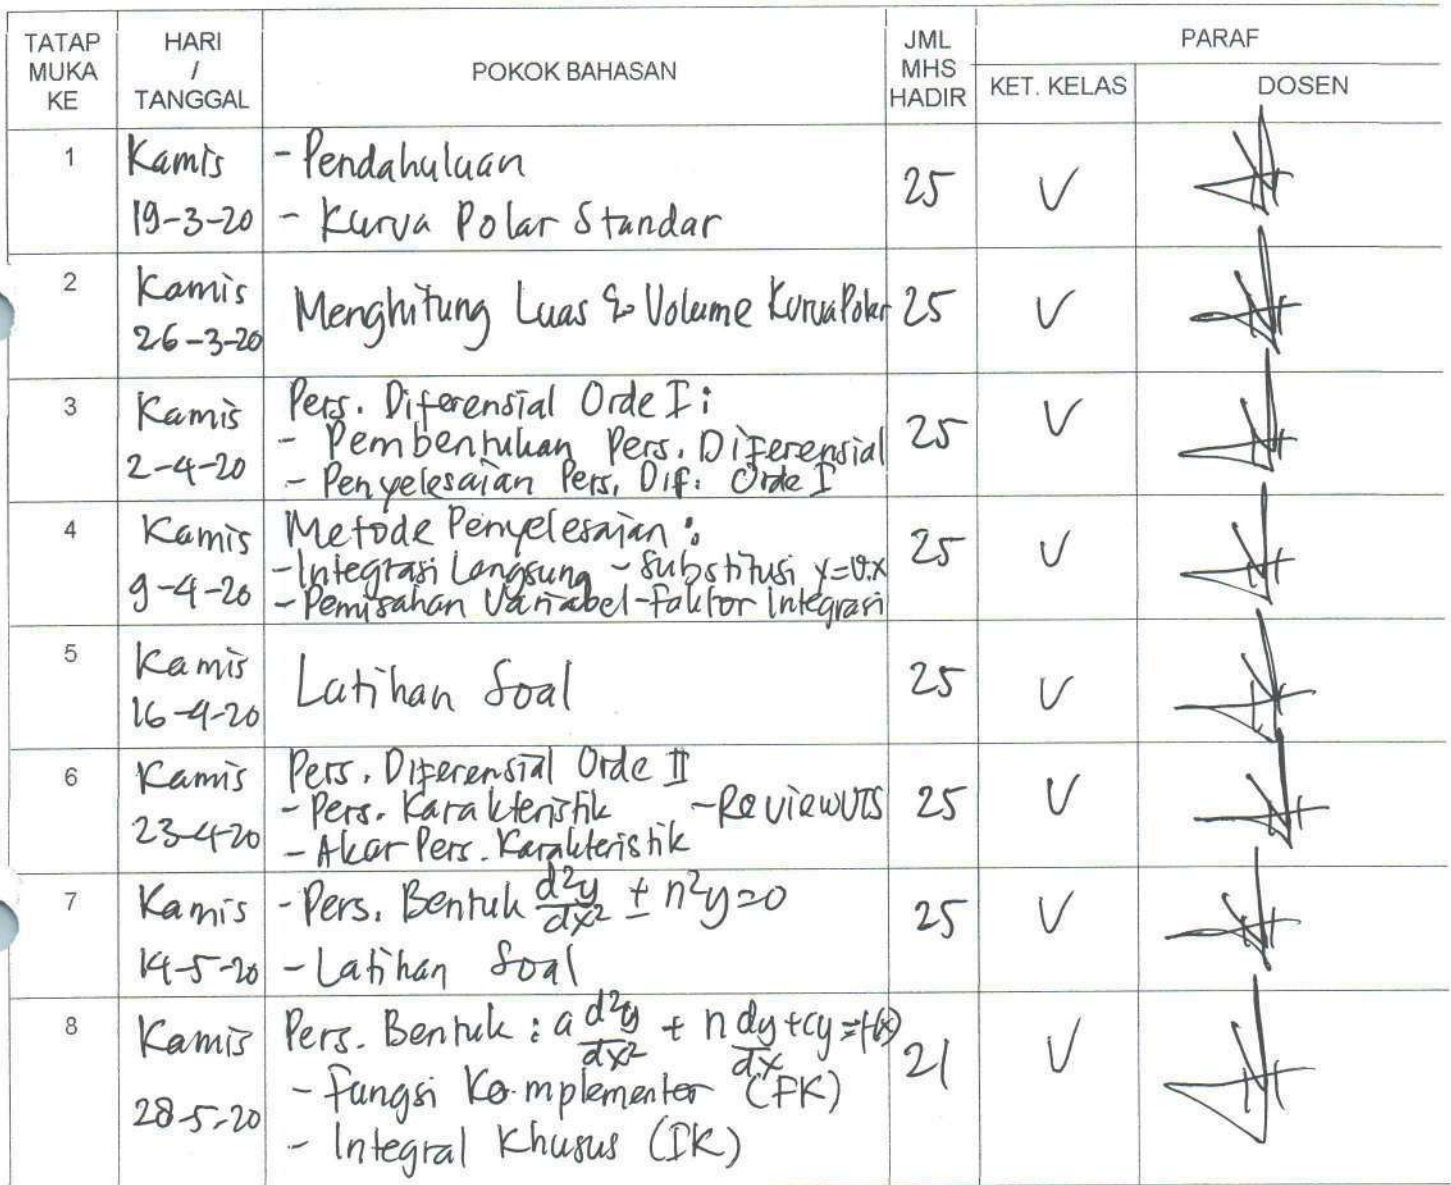 TATAP MUKA KE
HARI / TANGGAL
POKOK BAHASAN
JML MHS HADIR
PARAF
KET. KELAS
DOSEN
1
Kamis
19-3-20
- Pendahuluan
- Kurva Polar Standar
25
V
2
Kamis
26-3-20
Menghitung Luas & Volume Kurva Polar
25
V
3
Kamis
2-4-20
Pers. Diferensial Orde I :
- Pembentukan Pers. Diferensial
- Penyelesaian Pers. Dif. Orde I
25
V
4
Kamis
9-4-20
Metode Penyelesaian :
- Integrasi Langsung - Substitusi y=v.x
- Pemisahan Variabel - faktor integrasi
25
V
5
Kamis
16-4-20
Latihan Soal
25
V
6
Kamis
23-4-20
Pers. Diferensial Orde II
- Pers. Karakteristik - Review UTS
- Akar Pers. Karakteristik
25
V
7
Kamis
14-5-20
- Pers. Bentuk d²y/dx² ± n²y=0
- Latihan Soal
25
V
8
Kamis
28-5-20
Pers. Bentuk : a d²y/dx² + n dy/dx + cy = f(x)
- fungsi Komplementer (FK)
- Integral Khusus (IK)
21
V